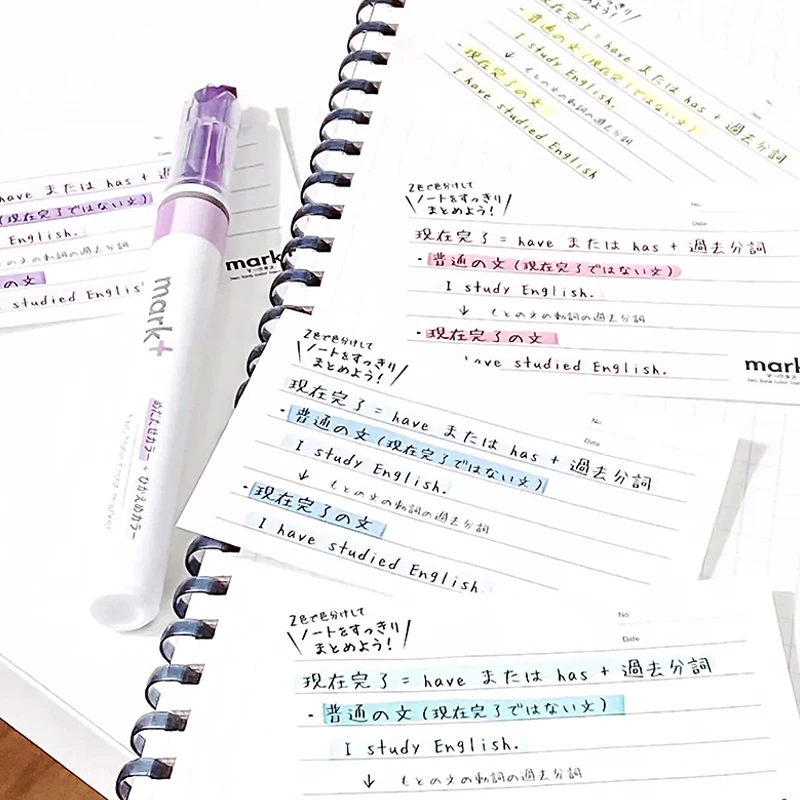 have または has + 過
(現在完了ではない文)
English.
の文
studied English
mark+
mark+
めだたせカラー + ひかえめカラー
現在完了 = have または has + 過去分詞
・普通の文(現在完了ではない文)
I study English.
↓ もとの文の動詞の過去分詞
・現在完了の文
I have studied English
2色で色分けして
ノートをすっきり
まとめよう!
No.
Date
現在完了 = have または has + 過去分詞
・普通の文(現在完了ではない文)
I study English.
↓ もとの文の動詞の過去分詞
・現在完了の文
have studied English.
mark
マークタス
2色で色分けして
ノートをすっきり
まとめよう!
No.
Date
現在完了 = have または has + 過去分詞
・普通の文(現在完了ではない文)
I study English.
↓ もとの文の動詞の過去分詞
・現在完了の文
I have studied English.
2色で色分けして
ノートをすっきり
まとめよう!
No.
Date
現在完了 = have または has + 過去分詞
・普通の文(現在完了ではない文)
I study English.
↓ もとの文の動詞の過去分詞